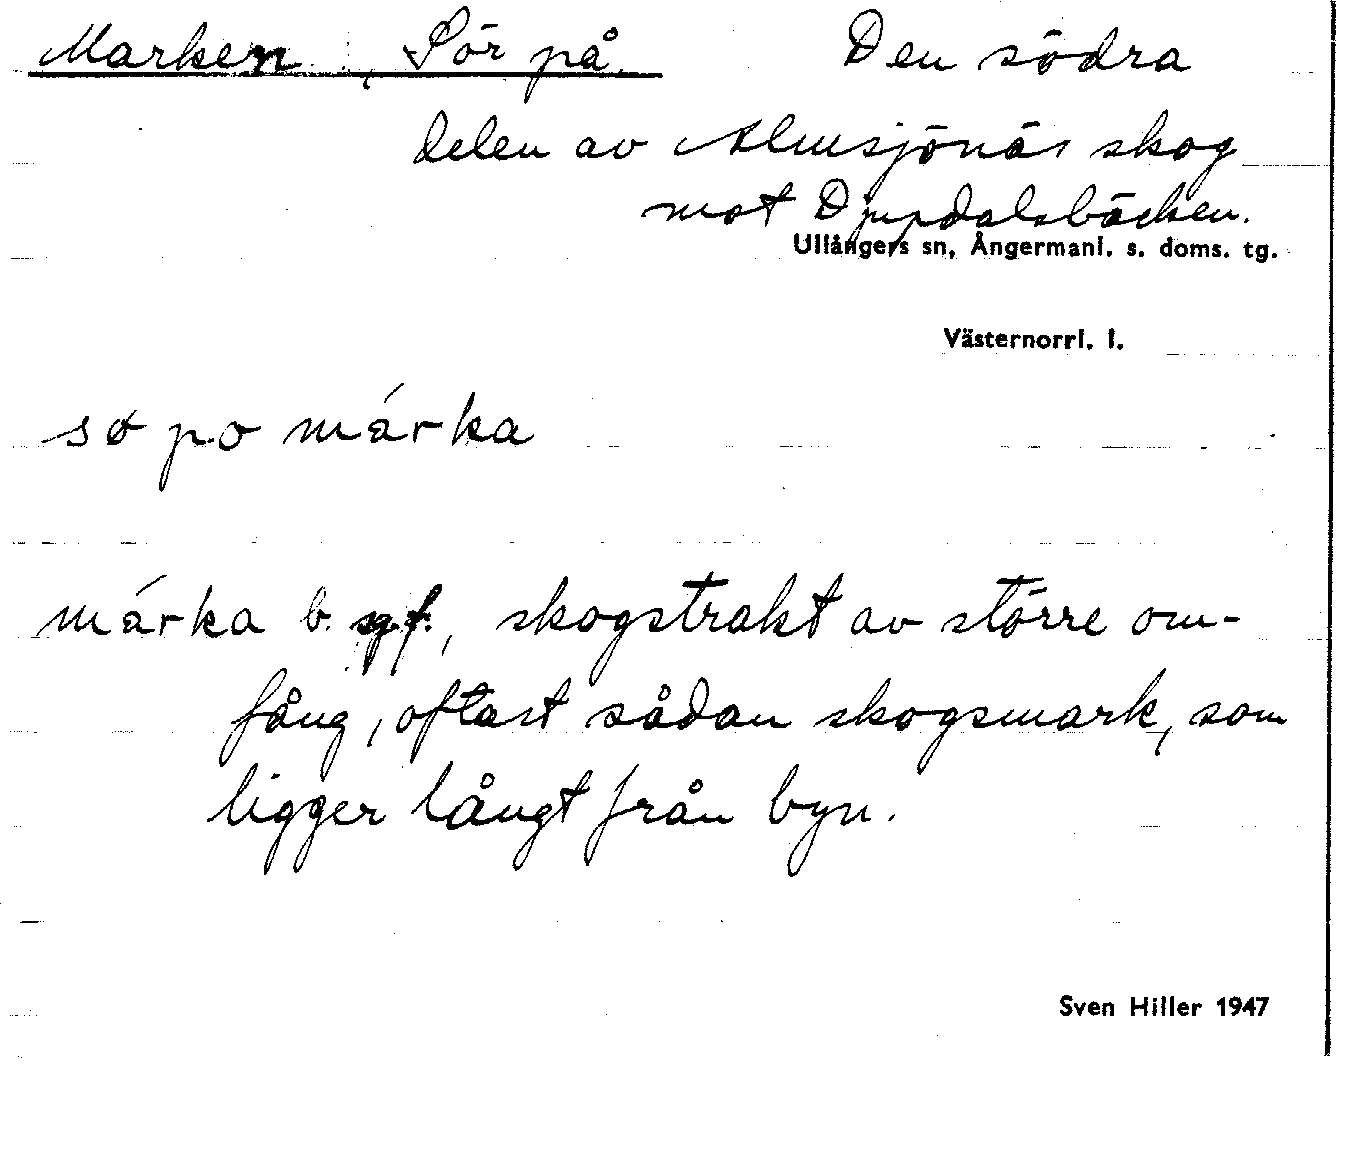 Marken, Sör på Den södra
delen av Almsjönäs skog
mot Djupdalsbäcken.
Ullångers sn, Ångermanl. s. doms. tg.
Västernorrl. l.
sø po márka
márka b. f., skogstrakt av större om-
fång, oftast sådan skogsmark, som
ligger långt från byn.
Sven Hiller 1947